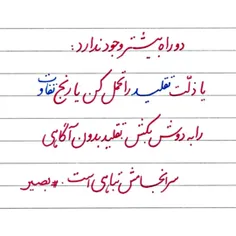 دو راه بیشتر وجود ندارد:
یا ذلّت تقلید را تحمل کن یا رنج تفاوت
را به دوش بکش. تقلید بدون آگاهی
سرانجامش تباهی است. #بصیر